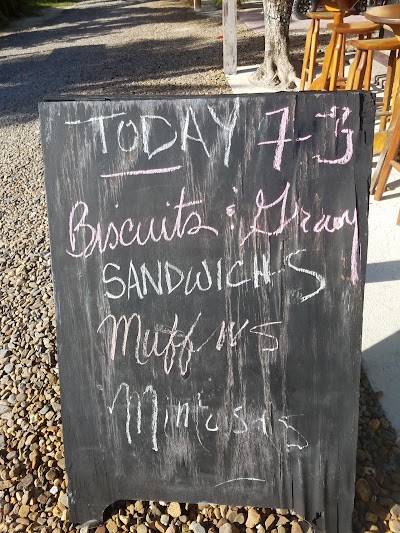 TODAY 7-3
Biscuits & Gravy
SANDWICHS
Muffins
Mimosas